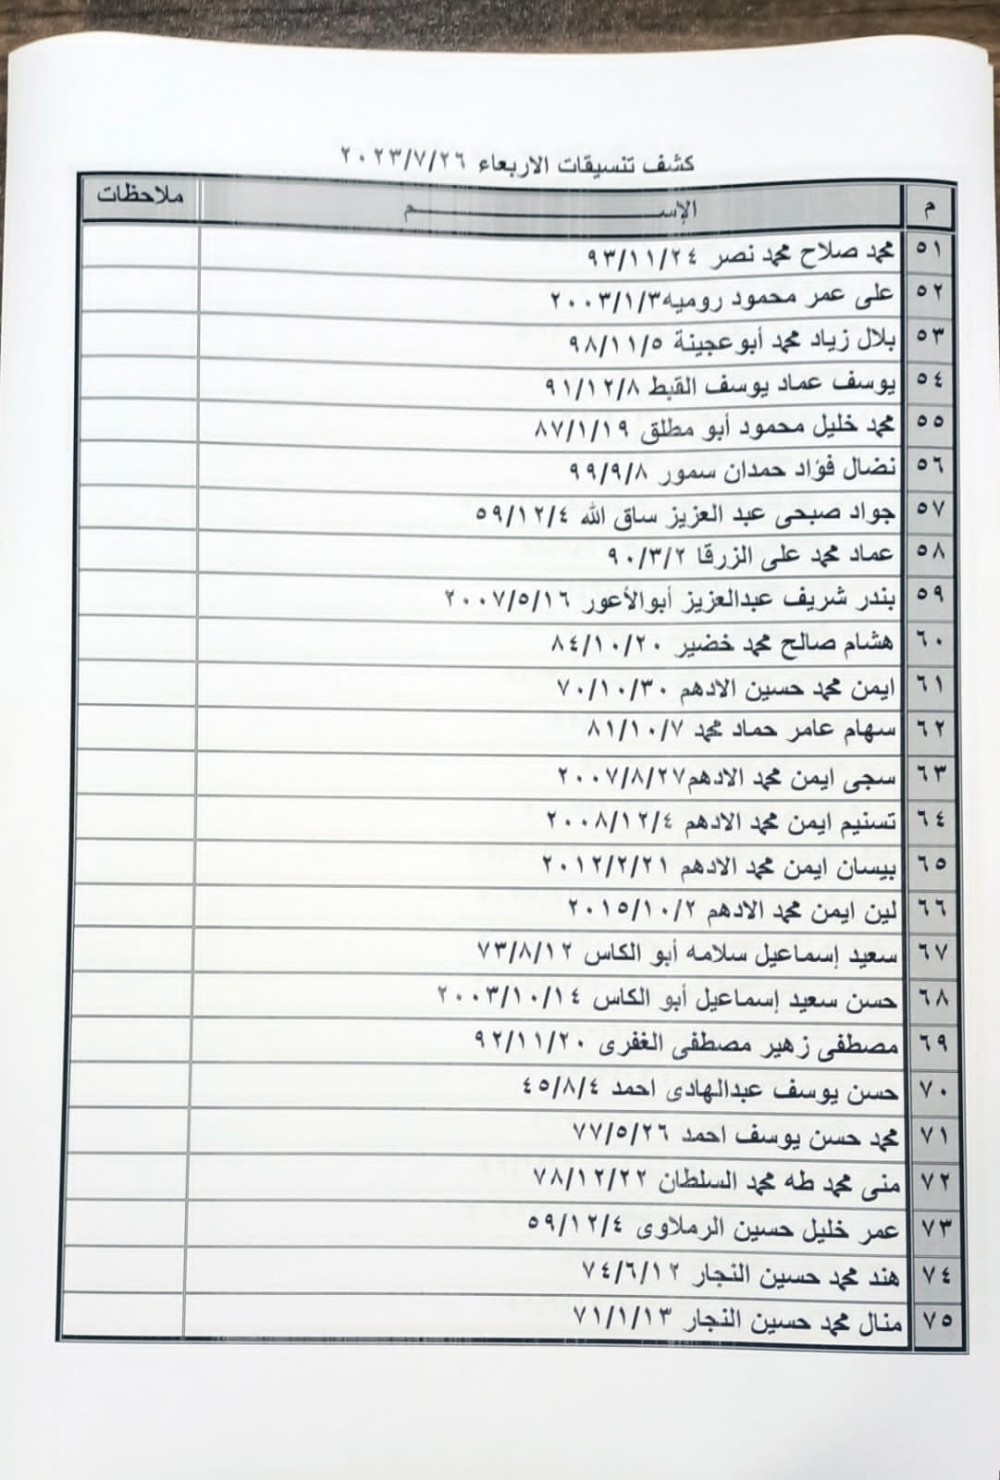 كشف تنسيقات الاربعاء ٢٠٢٣/٧/٢٦
م الإســــــــم ملاحظات
٥١ محمد صلاح محمد نصر ٩٣/١١/٢٤
٥٢ على عمر محمود روميه٢٠٠٣/١/٣
٥٣ بلال زياد محمد أبوعجينة ٩٨/١١/٥
٥٤ يوسف عماد يوسف القبط ٩١/١٢/٨
٥٥ محمد خليل محمود أبو مطلق ٨٧/١/١٩
٥٦ نضال فؤاد حمدان سمور ٩٩/٩/٨
٥٧ جواد صبحى عبد العزيز ساق الله ٥٩/١٢/٤
٥٨ عماد محمد على الزرقا ٩٠/٣/٢
٥٩ بندر شريف عبدالعزيز أبوالأعور ٢٠٠٧/٥/١٦
٦٠ هشام صالح محمد خضير ٨٤/١٠/٢٠
٦١ ايمن محمد حسين الادهم ٧٠/١٠/٣٠
٦٢ سهام عامر حماد محمد ٨١/١٠/٧
٦٣ سجى ايمن محمد الادهم٢٠٠٧/٨/٢٧
٦٤ تسنيم ايمن محمد الادهم ٢٠٠٨/١٢/٤
٦٥ بيسان ايمن محمد الادهم ٢٠١٢/٢/٢١
٦٦ لين ايمن محمد الادهم ٢٠١٥/١٠/٢
٦٧ سعيد إسماعيل سلامه أبو الكاس ٧٣/٨/١٢
٦٨ حسن سعيد إسماعيل أبو الكاس ٢٠٠٣/١٠/١٤
٦٩ مصطفى زهير مصطفى الغفرى ٩٢/١١/٢٠
٧٠ حسن يوسف عبدالهادى احمد ٤٥/٨/٤
٧١ محمد حسن يوسف احمد ٧٧/٥/٢٦
٧٢ منى محمد طه محمد السلطان ٧٨/١٢/٢٢
٧٣ عمر خليل حسين الرملاوى ٥٩/١٢/٤
٧٤ هند محمد حسين النجار ٧٤/٦/١٢
٧٥ منال محمد حسين النجار ٧١/١/١٣